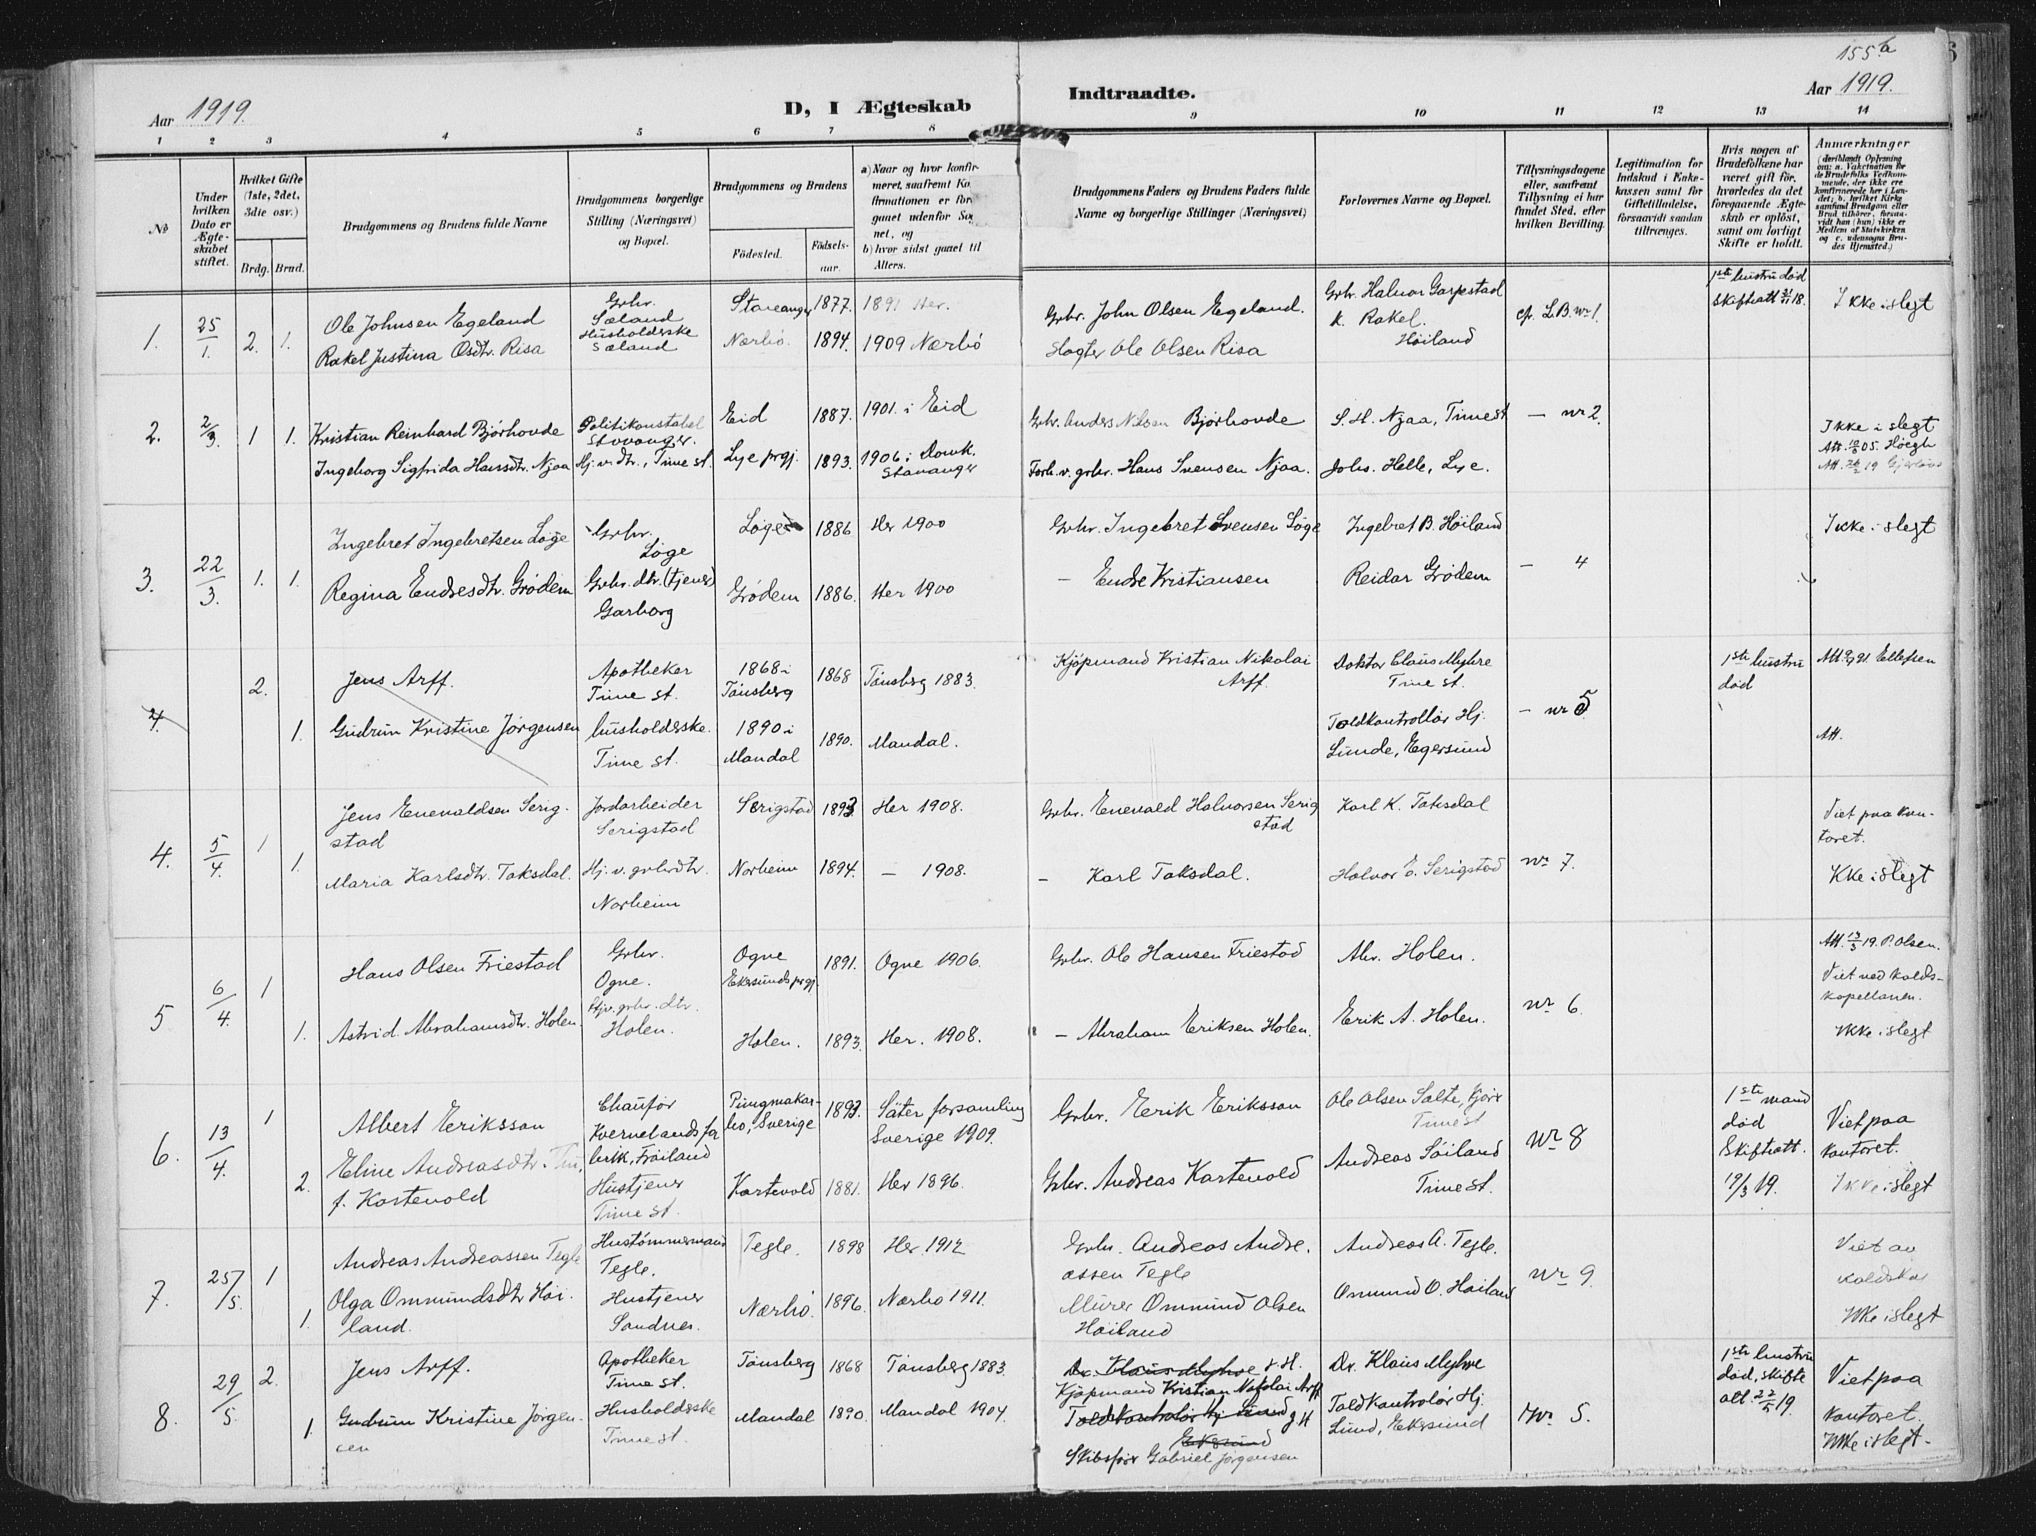 155 b
Aar 1919.
D, I Ægteskab
Indtraadte.
Aar 1919.
1 2 3 4 5 6 7 8 9 10 11 12 13 14
No
Under hvilken Dato er Ægteskabet stiftet.
Hvilket Gifte (1ste, 2det, 3die osv.)
Brdg. Brud.
Brudgommens og Brudens fulde Navne
Brudgommens borgerlige Stilling (Næringsvei) og Bopæl.
Brudgommens og Brudens
Födested. Födselsaar.
a) Naar og hvor konfirmeret, saafremt
b) hvor sidst gaaet til Alters.
Brudgommens Faders og Brudens Faders fulde Navne og borgerlige Stillinger (Næringsvei)
Forlovernes Navne og Bopæl.
Tillysningsdagene eller, saafremt Tillysning ei har fundet Sted, efter hvilken Bevilling.
Legitimation for Indskud i Enkekassen samt for Giftetilladelse, forsaavidt saadan tiltrænges.
Hvis nogen af Brudefolkene har været gift för, hvorledes da det foregaaende Ægteskab er oplöst, samt om lovligt Skifte er holdt.
Anmærkninger
1. 25/1. 2. 1.
Ole Johnsen Egeland
Rakel Justina Osdtr. Risa
Grbr. Sæland
Husholderske Sæland
Stavanger 1877. 1891 Her.
Nærbö. 1894. 1909 Nærbö
Grbr. John Olsen Egeland.
Slagter Ole Olsen Risa
Grbr. Halvor Garpestad
K. Rakel. Höiland
cf. L.B. nr 1.
1ste hustru död
Skifteatt 21/11 18.
Ikke i slegt
2. 2/3. 1 1.
Kristian Reinhard Bjørhovde
Ingeborg Sigfrida Hansdtr. Njaa
Politikonstabel Stavanger.
Hj. v. dtr., Time st.
Eid 1887. 1901. i Eid
Lye prgj. 1893. 1906 i Domk. Stavanger
Grbr. Anders Nilsen Bjørhovde
Forh. v. grbr. Hans Svensen Njaa.
S. H. Njaa, Time st
Johs. Helle, Lye.
— nr 2.
Ikke i slegt
3. 22/3. 1. 1.
Ingebret Ingebretsen Löge
Regina Endresdtr. Grödem
Grbr. Löge
Grbr. dtr. (tjener) Garborg
Löge 1886 Her 1900
Grödem 1886. Her 1900
Grbr. Ingebret Svensen Löge
— Endre Kristiansen
Ingebret B. Höiland
Reidar Grödem
— 4
Ikke i slegt
4. 2. 1.
Jens Arff.
Gudrun Kristine Jörgensen
Apotheker Time st.
husholderske. Time st.
1868 i Tönsberg 1868 Tönsberg 1883.
1890 i Mandal 1890. Mandal.
Kjöpmand Kristian Nikolai Arff.
Doktor Claus Myhre Time st.
Toldkontrollör Hj. Lunde, Egersund
— nr 5
1ste hustru död
Att. Ellefsen
Att.
4. 5/4. 1 1.
Jens Enevaldsen Serigstad
Maria Karlsdtr. Taksdal.
Jordarbeider Serigstad
Hj. v. grbrdtr. Norheim
Serigstad 1893 Her 1908.
Norheim 1894. — 1908.
Grbr. Enevald Halvorsen Serigstad
— Karl Taksdal.
Karl K. Taksdal
Halvor E. Serigstad
nr 7.
Viet paa kontoret.
Ikke i slegt
5 6/4. 1 1.
Hans Olsen Friestad
Astrid Abrahamsdtr. Holen
Grbr. Ogne.
Hjv. grbr. dtr. Holen.
Ogne Ekersunds prgj. 1891. Ogne 1906.
Holen. 1893. Her. 1908.
Grbr. Ole Hansen Friestad
— Abraham Eriksen Holen.
Abr. Holen.
Erik A. Holen.
nr 6.
Att. 13/3 19. P. Olsen.
Viet ved kaldskapellanen.
Ikke i slegt
6. 13/4. 1 2.
Albert Eriksson
Eline Andreasdtr.
f. Kartevold
Chauför Kvernelands fabrik, Fröiland
Hustjener Time st.
Pungmakarbo, Sverige 1893. Säter forsamling Sverige 1909.
Kartevold 1881. Her 1896.
Grbr. Erik Eriksson
Grbr. Andreas Kartevold
Ole Olsen Salte,
Time st
Andreas Söiland Time st.
nr 8
1ste mand död
Skifteatt. 19/3 19.
Viet paa kontoret.
Ikke i slegt
7. 25/5. 1 1.
Andreas Andreassen Tegle
Olga Ommundsdtr Höiland.
Hustömmermand Tegle.
Hustjener Sandnes.
Tegle. 1898 Her. 1912
Nærbö. 1896. Nærbo 1911.
Grbr. Andreas Andreassen Tegle
Murer Ommund Olsen Höiland
Andreas A. Tegle.
Ommund O. Höiland
nr 9.
Viet av
Ikke i slegt
8. 29/5. 2. 1.
Jens Arff.
Gudrun Kristine Jörgensen
Apotheker Time st.
Husholderske Time st.
Tönsberg 1868 Tönsberg 1883.
Mandal 1890. Mandal 1904.
Dr. Klaus Myhre
Kjöpmand Kristian Nikolai Arff
Toldkontrolör Hj Lund
Ekersund
Skibsförer Gabriel Jörgensen
Dr. Klaus Myhre
Toldkontrolör Hj. Lund, Ekersund
Nr. 5.
1ste hustru död, skifte att. 22/5 19.
Viet paa kontoret.
Ikke i slegt.